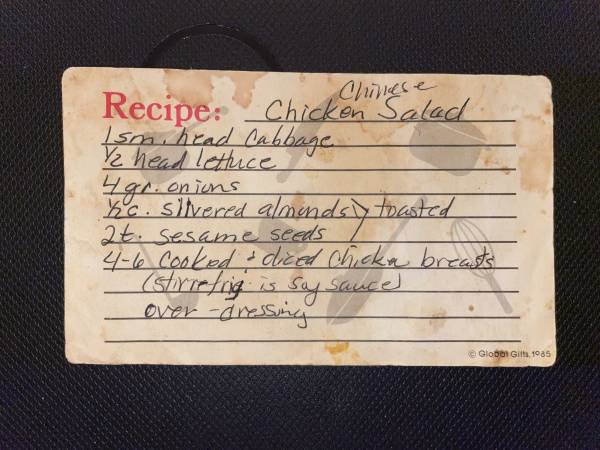 Chinese
Recipe: Chicken Salad
1 sm. head Cabbage
1/2 head lettuce
4 gr. onions
1/2 c. silvered almonds } toasted
2t. sesame seeds
4-6 cooked & diced Chicken breasts
(stirrefry is soy sauce)
over - dressing
© Global Gifts, 1985